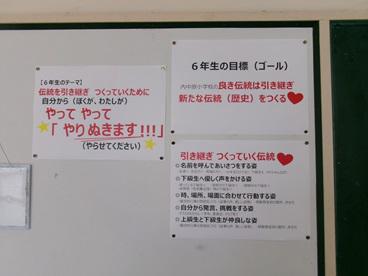 【６年生のテーマ】
伝統を引き継ぎ つくっていくために
自分から（ぼくが、わたしが）
やって やって
「やりぬきます!!!」
（やらせてください）
６年生の目標（ゴール）
内中原小学校の良き伝統は引き継ぎ
新たな伝統（歴史）をつくる
引き継ぎ つくっていく伝統
名前を呼んであいさつをする姿
下級生へ優しく声をかける姿
時、場所、場面に合わせて行動する姿
自分から発言、挑戦をする姿
上級生と下級生が仲良しな姿